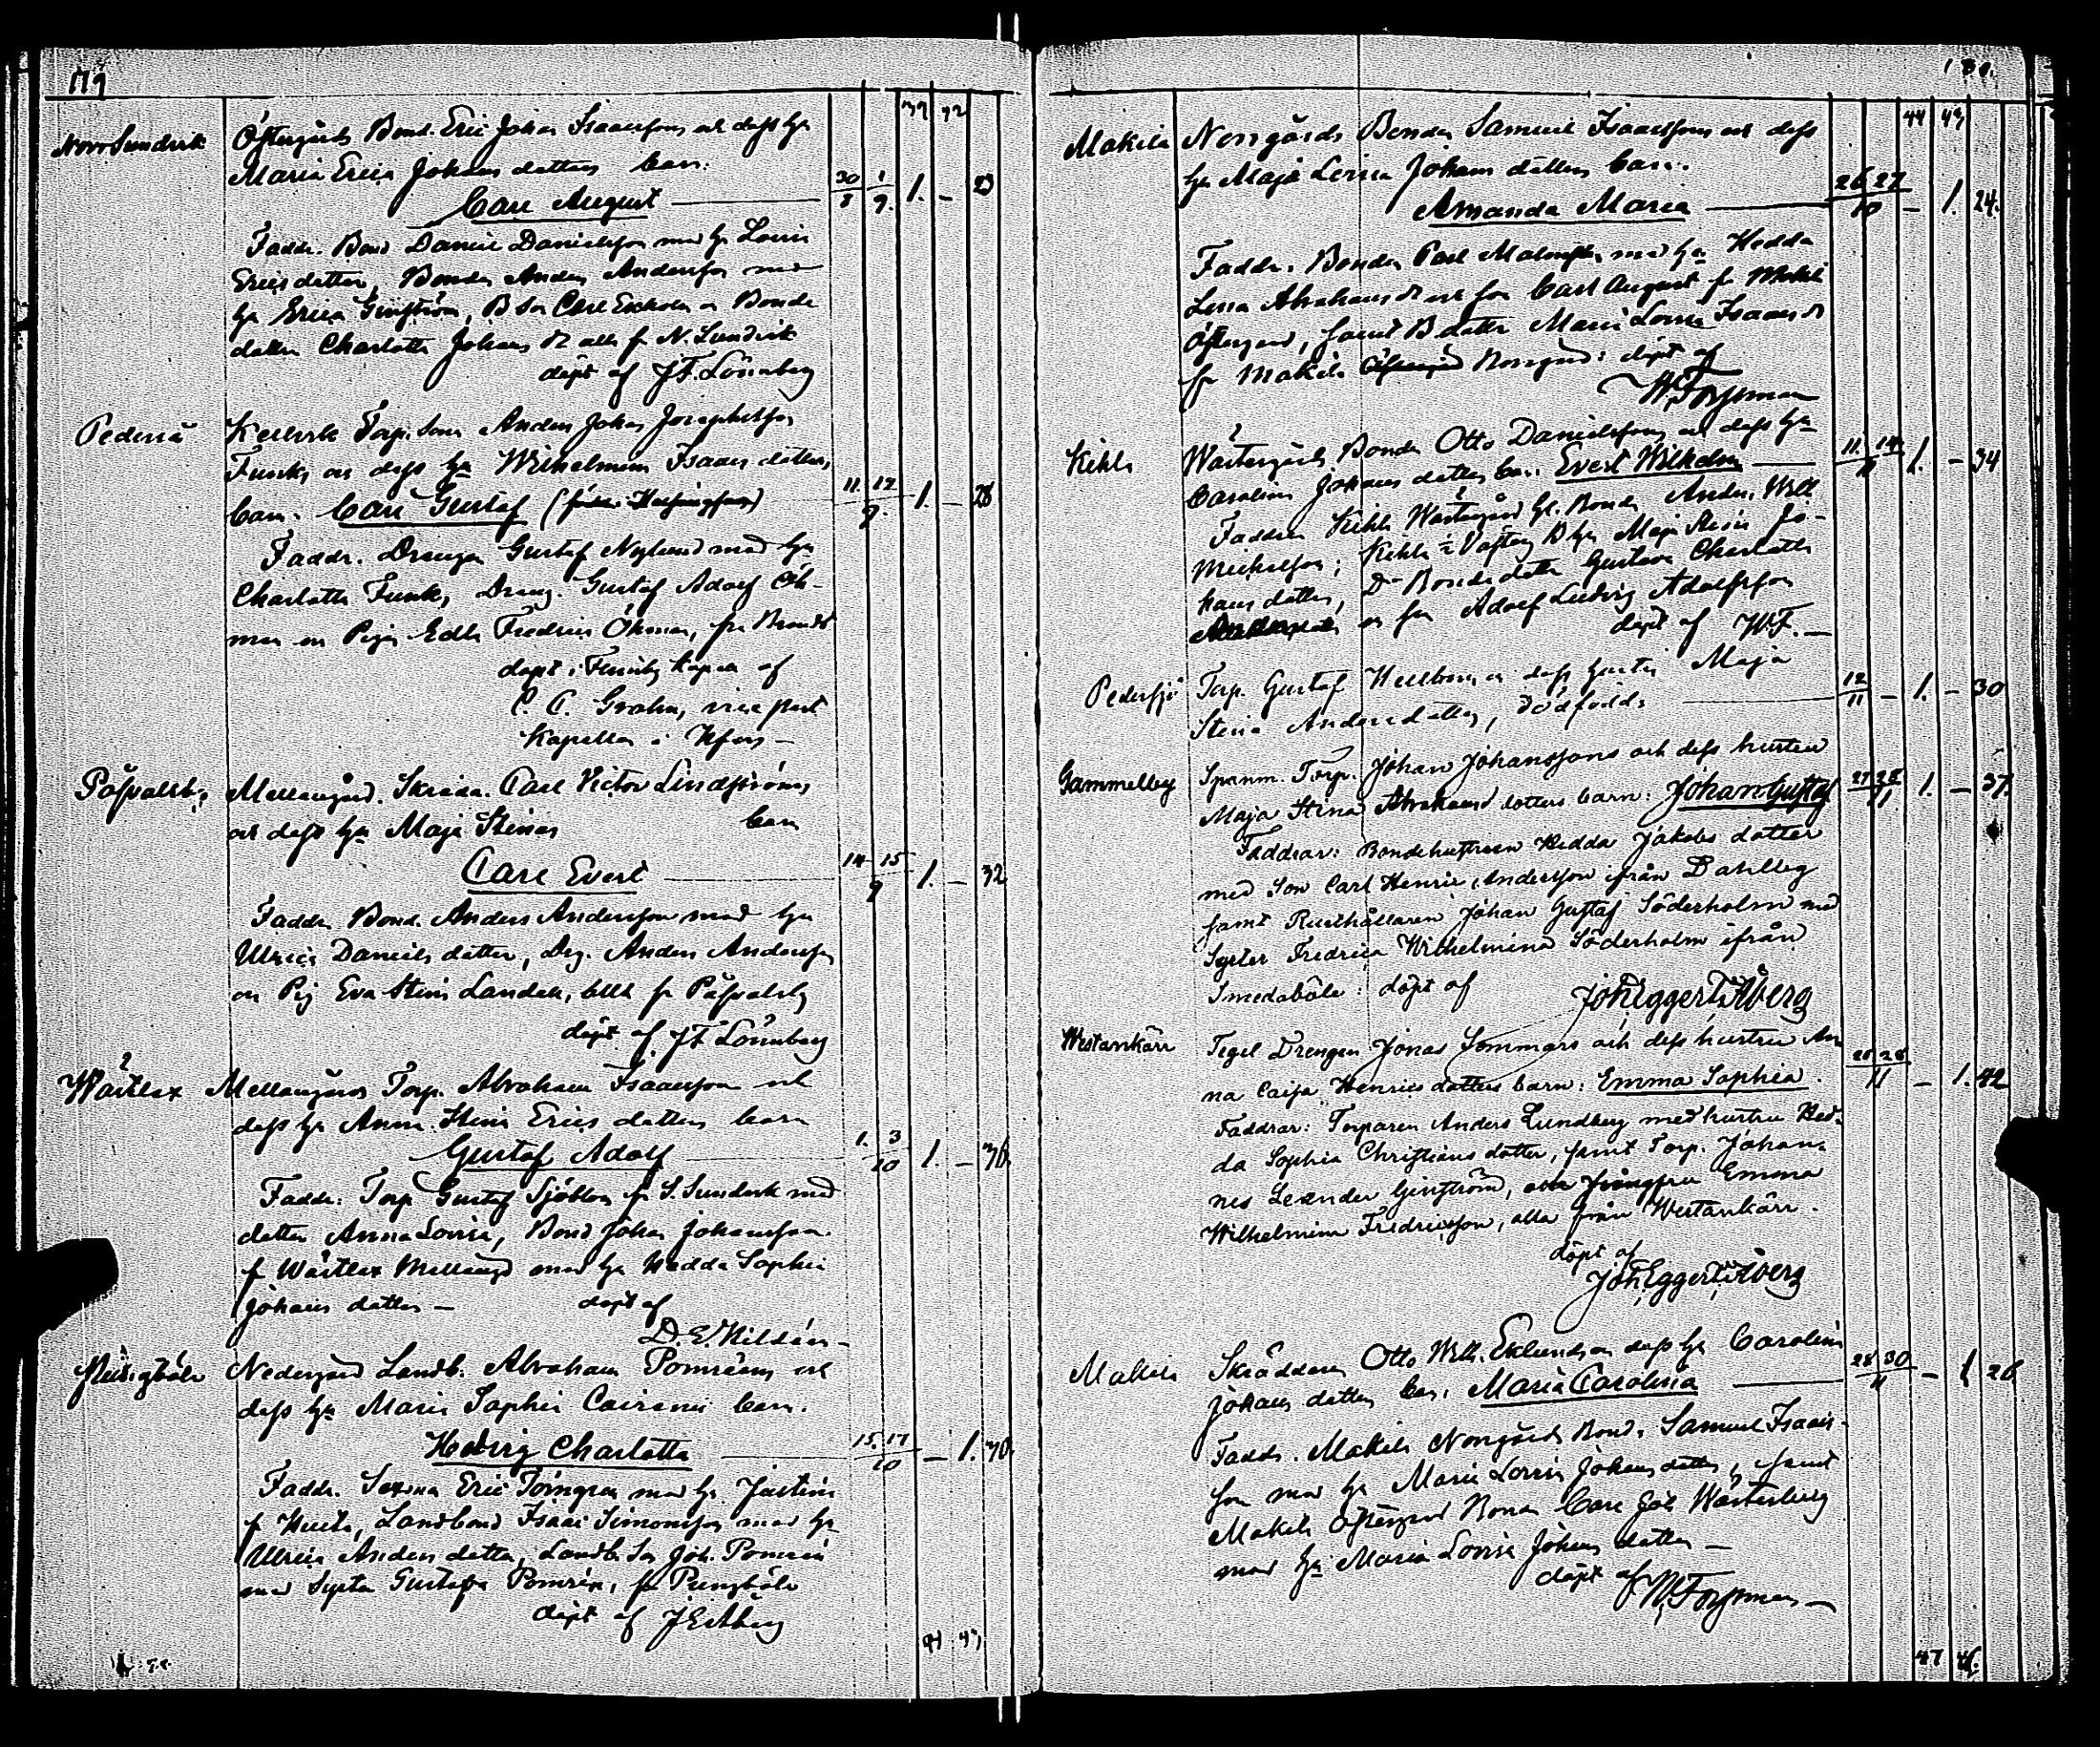 179
39 42
Norrsundvik Östergårds Bond. Eric Johan Isaacssons och dess hu
Maria Erica Johans dotters barn:
Carl August 30/8 1/9. 1. – 29
Faddr. Bond Daniel Danielsson med hu Lovisa
Ericsdotter, Bonden Anders Andersson med
hu Erica Ginström, B Son Carl Enholm o Bonde
dotter Charlotta Johans dr alla fr N. Sundvik
döpt af J F. Lönnberg
Pederså Torp. Sonen Anders Johan Josephsson
Funks och dess hu Wilhelmina Isaacs dotters
barn. Carl Gustaf 11. 12/9. 1. – 28
Faddr. Drengen Gustaf Nylund med hu
Charlotta Funk, Dreng. Gustaf Adolf Öh-
man en Pigan Edla Fredrica Öhman, fr
döpt i af
C. A. Grahn, vice past.
Kapellan i Hfors –
Påsvalsby Mellangård. Skrädd. Carl Victor Lindströms
och dess hu Maja Stinas barn
Carl Evert 14 15/9 1. – 32
Faddr. Bond. Anders Andersson med hu
Ulrica Daniels dotter, Drg. Anders Andersson
och Pig Eva Stina Landell, alla fr Påsvalsby
döpt af J F Lönnberg
Wårtlax Mellangårds Torp. Abraham Isaacsson och
dess hu Anna Stina Erics dotters barn
Gustaf Adolf 1. 3/10 1. – 36
Faddr: Torp Gustaf Sjöblom fr S. Sundvik med
dotter Anna Lovisa, Bond Johan Johansson
fr Wårtlax Mellangd med hu Hedda Sophia
Johans dotter – döpt af
D. E. Hildén –
Nedergård Landb. Abraham Pomréns och
dess hu Maria Sophia Cairenii barn.
Hedvig Charlotta 15. 17/10 – 1. 30
Faddr. Eric Törngren med hu Justina
fr, Landbond Isaac Simonsson med hu
Ulrica Anders dotter, Landb. Son Joh. Pomrén
med Syster Gustafva Pomrén, fr Pungböle
döpt af J E Åberg
41 43
180.
44 43
Makila Norrgårds Bonden Samuel Isaacssons och dess
hu Maja Lovisa Johans dotters barn.
Amanda Maria 26 27/10 – 1. 24.
Faddr. Bonden Carl Malmsten med hu Hedda
Lovisa Abrahams dr och son Carl August fr Makila
Östergård, samt B dotter Maria Lovisa Isaacs dr
fr Makila Norrgård: döpt af
W. Forsman
Kihla Wästergårds Bonden Otto Danielssons och dess hu
Carolina Johans dotters barn. Evert Wilhelm 11. 14/11 1. – 34
Faddrar Kihla Wästergård fd. Bonden Anders Wilh.
Michelsson; Kihla B hu Maja Stina Jo-
hans dotter, D:o Bondedotter Gustava Charlotta
o fr Adolf Ludvig Adolfsson
döpt af W.F. –
Pedersjö Torp. Gustaf Hellborg o dess hustru Maja
Stina Andersdotter, dödfödd 12/11 – 1. – 30
Gammelby Spanm. Torp. Johan Johanssons och dess hustru
Maja Stina Abrahams dotters barn: Johan Gustaf 27 28/11 1. – 37.
Faddrar: Bondehustrun Hedda Jakobs dotter
med Son Carl Henric Andersson ifrån Dahlby
samt Rusthållaren Johan Gustaf Söderholm med
Syster Fredrica Wilhelmina Söderholm ifrån
Smedsböle: döpt af Joh. Eggert Åberg
Westankärr Tegel Drengen Jonas Sommars och dess hustru An
na Caisa Henrics dotters barn: Emma Sophia. 28 28/11 – 1. 42
Faddrar: Torparen Anders Lundberg med hustru Hed-
da Sophia Christians dotter, samt Torp. Johan-
nes Leander Ginström, och Jungfru Emma
Wilhelmina Fredricsson, alla från Westankärr.
döpt af
Joh. Eggert Åberg
Makila Skräddaren Otto Wilh. Eklunds o dess hu Carolina
Johans dotters barn. Maria Carolina 28 30/11 – 1 26
Faddr. Makila Norrgårds Bond. Samuel Isaacs-
son med hu Maria Lovisa Johans dotter, samt
Makila Östergård Bonden Carl Joh Wästerberg
med hu Maria Lovisa Johans dotter –
döpt af W. Forsman –
47 46.